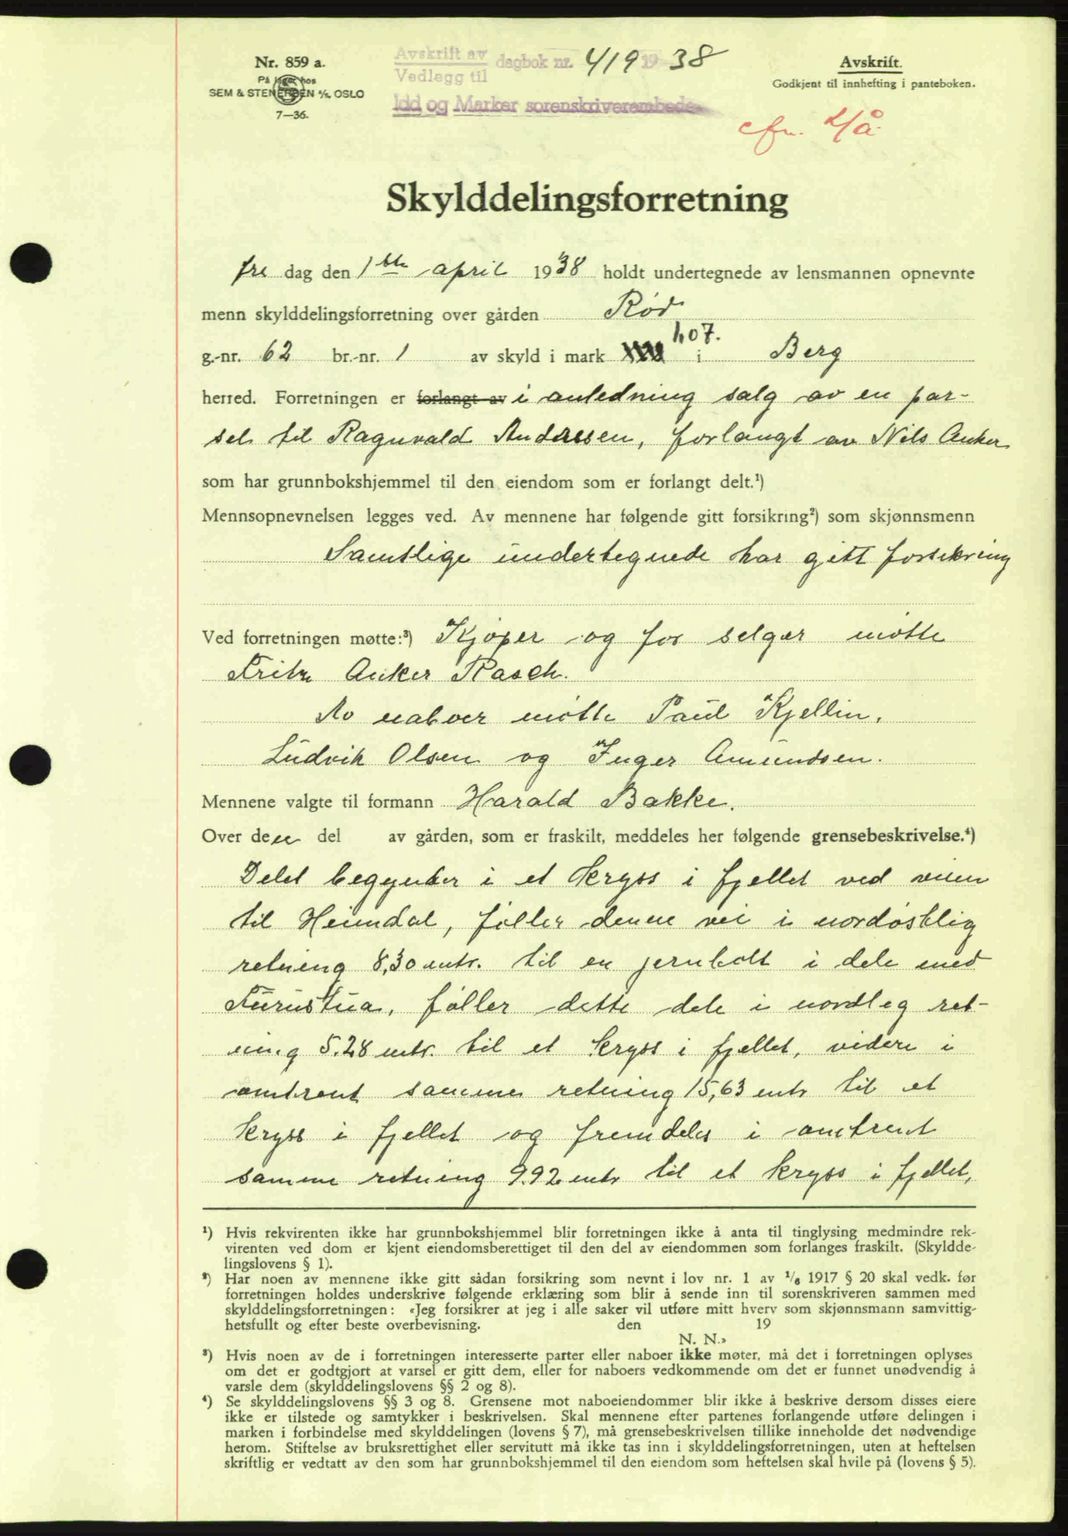 Nr. 859 a.
På lager hos
SEM & STENERSEN A/S. OSLO
7—36.
Avskrift av
Vedlegg til dagbok nr. 419 1938
Idd og Marker sorenskriverembede
Avskrift.
Godkjent til innhefting i panteboken.
cfr. 2/å
Skylddelingsforretning
fre dag den 1ste april 1938 holdt undertegnede av lensmannen opnevnte
menn skylddelingsforretning over gården Rød
g.-nr. 62 br.-nr. 1 av skyld i mark 407. i Berg
herred. Forretningen er forlangt av i anledning salg av en par-
sel til Ragnvald Andresen, forlangt av Nils Anker
som har grunnbokshjemmel til den eiendom som er forlangt delt.¹)
Mennsopnevnelsen legges ved. Av mennene har følgende gitt forsikring²) som skjønnsmenn
Samtlige undertegnede har gitt forsikring
Ved forretningen møtte:³) Kjøper og for selger møtte
Fritz Anker Rasch.
Av naboer møtte Paul Kjellin,
Ludvik Olsen og Inger Amundsen.
Mennene valgte til formann Harald Bakke.
Over den del av gården, som er fraskilt, meddeles her følgende grensebeskrivelse.⁴)
Delet begynder i et kryss i fjellet ved veien
til Heimdal, føller denne vei i nordøstlig
retning 8,30 mtr. til en jernbolt i dele med
Furustua, føller dette dele i nordleg ret-
ning 5.28 mtr. til et kryss i fjellet, videre i
omtrent samme retning 15,63 mtr til et
kryss i fjellet og fremdeles i omtrent
samme retning 9.92 mtr til et kryss i fjellet,
¹) Hvis rekvirenten ikke har grunnbokshjemmel blir forretningen ikke å anta til tinglysing medmindre rek-
virenten ved dom er kjent eiendomsberettiget til den del av eiendommen som forlanges fraskilt. (Skyldde-
lingslovens § 1).
²) Har noen av mennene ikke gitt sådan forsikring som nevnt i lov nr. 1 av 1/6 1917 § 20 skal vedk. før
forretningen holdes underskrive følgende erklæring som blir å sende inn til sorenskriveren sammen med
skylddelingsforretningen: «Jeg forsikrer at jeg i alle saker vil utføre mitt hverv som skjønnsmann samvittig-
hetsfullt og efter beste overbevisning. den 19
N. N.»
³) Hvis noen av de i forretningen interesserte parter eller naboer ikke møter, må det i forretningen oplyses
om det er godtgjort at varsel er gitt dem, eller for naboers vedkommende om det er funnet unødvendig å
varsle dem (skylddelingslovens §§ 2 og 8).
⁴) Se skylddelingslovens §§ 3 og 8. Grensene mot naboeiendommer blir ikke å beskrive dersom disses eiere
ikke er tilstede og samtykker i beskrivelsen. Skal mennene efter partenes forlangende utføre delingen i
marken i forbindelse med skylddelingen (lovens § 7), må grensebeskrivelsen tillike inneholde det nødvendige
herom. Stiftelse av bruksrettighet eller servitutt må ikke tas inn i skylddelingsforretningen, uten at heftelsen
skriftlig er vedtatt av den som har grunnbokshjemmel til den eiendom som heftelsen skal hvile på (lovens § 5).